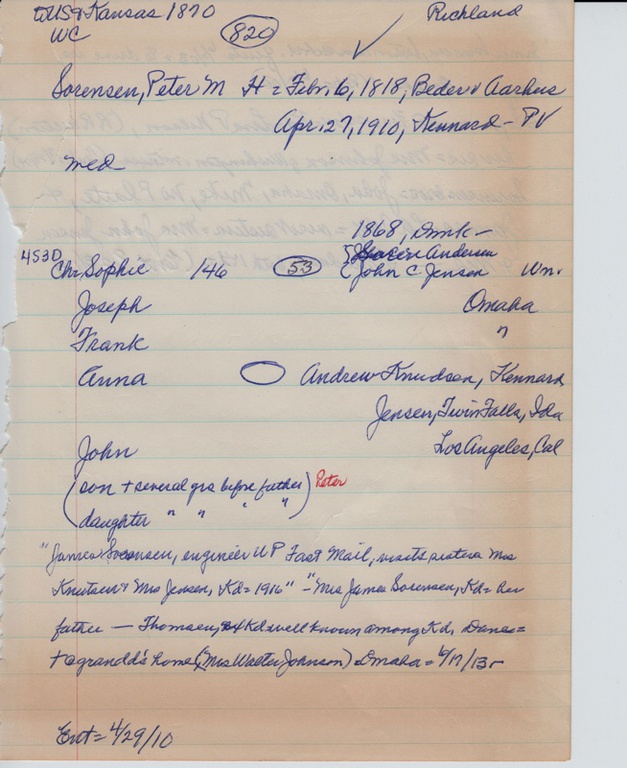 US & Kansas 1870 Richland
WC 820 ✓
Sorensen, Peter M H = Febr. 6, 1818, Beder v Aarhus
Apr. 27, 1910, Kennard - PV
med
1868, Dmk -
453D Andersen
Chr Sophie 146 53 John C Jensen Wn.
Joseph Omaha
Frank "
Anna Andrew Knudsen, Kennard
Jensen, Twin Falls, Ida
John Los Angeles, Cal
(son + several yrs before father) Peter
daughter " " " "
"James Sorensen, engineer UP Fast Mail, visits sisters Mrs
Knutsen & Mrs Jensen, Kd = 1916" - "Mrs James Sorensen, Kd = her
father — Thomsen, Kd well known among Kd. Danes =
+ @ grandd's home (Mrs Walter Johnson) Omaha = 6/17/15-
Ent = 4/29/10